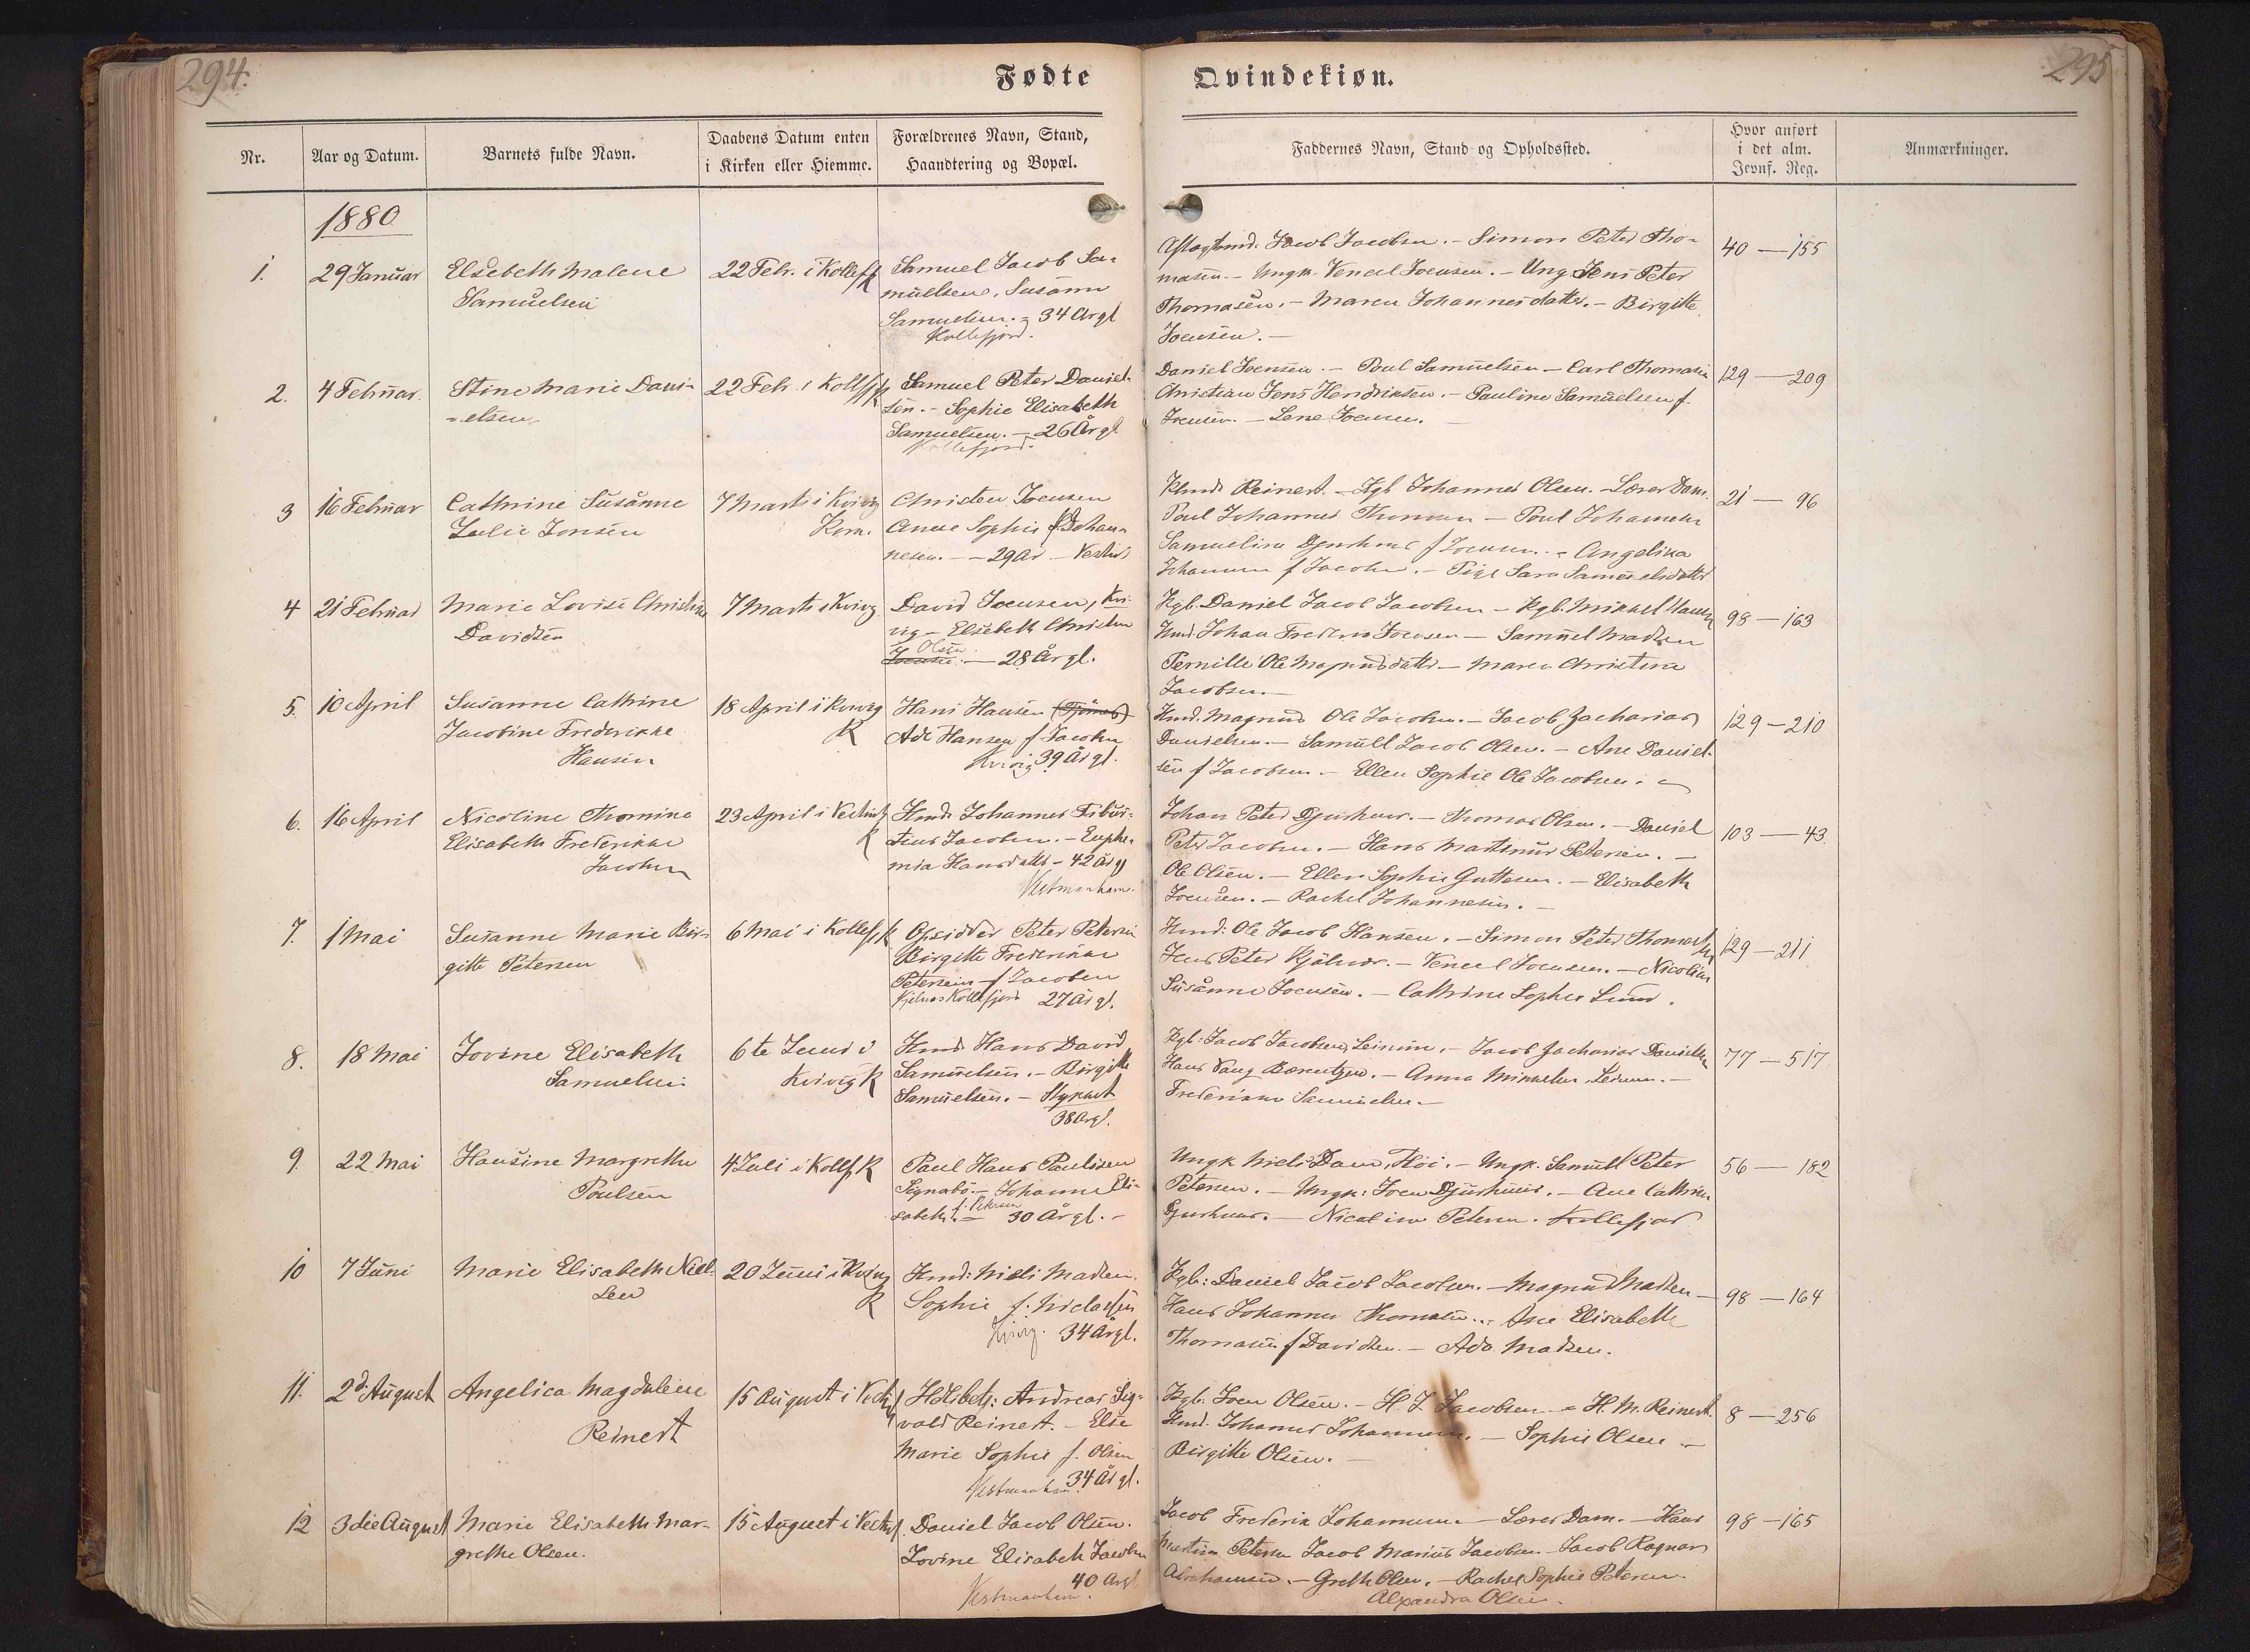 294.
Fødte
Nr.
Aar og Datum.
Barnets fulde Navn.
Daabens Datum enten
i Kirken eller Hiemme.
Forældrenes Navn, Stand,
Haandtering og Bopæl.
1880
1. 29 Januar Elsebeth Malene 22 Febr. i Kollefj Samuel Jacob Sa-
Samuelsen K muelsen, Susanne
Samuelsen. 34 Årgl
Kollefjord.
2. 4 Februar. Stine Marie Dani- 22 Febr. i Kollfj K Samuel Peter Daniel-
-elsen. sen. - Sophie Elisabeth
Samuelsen. - 26 Årgl
Kollefjord.
3 16 Februar Cathrine Susanne 7 Marts i Kvivig Christen Joensen
Julie Jonsen Kirk. Anne Sophie f. Johan-
nesen. - 29 År -
4 21 Februar Marie Lovise Christine 7 Marts i Kvivig David Joensen, Kvi-
Davidsen vig - Elsebeth Christine
f. Olsen
Joensen. - 28 År gl.
5. 10 April Susanne Cathrine 18 April i Kvivig Hans Hansen
Jacobine Frederikke K Ade Hansen f. Jacobsen
Hansen Kvivig 39 År gl.
6. 16 April Nicoline Thomine 23 April i Vestmh Hmd. Johannes Tibur-
Elisabeth Frederikke K tius Jacobsen. - Euphe-
Jacobsen mia Hansdatter - 42 År gl
Vestmanhavn.
7. 1 Mai Susanne Marie Bir- 6 Mai i Kollefj K Opsidder Peter Petersen
gitte Petersen Birgitte Frederikke
Petersen f Jacobsen
Kjelnæs Kollefjord 27 År gl.
8. 18 Mai Jovine Elisabeth 6te Juni i Hmd. Hans David
Samuelsen Kvivig K Samuelsen. - Birgitte
Samuelsen. - Stykket
38 Årgl.
9. 22 Mai Hansine Margrethe 4 Juli i Kollfj K Paul Hans Paulsen
Poulsen Signabö. - Johanne Eli-
sabeth f. Petersen - 30 År gl. -
10 7 Juni Marie Elisabeth Niel- 20 Juni i Kvivig Hmd: Niels Madsen.
sen K Sophie f. Niclassen
Kvivig. 34 Årgl.
11. 2d August Angelica Magdalene 15 August i Vestmh Hdlsbetj: Andreas Sig-
Reinert vald Reinert. - Else
Marie Sophie f. Olsen
Vestmanhavn. 34 År gl.
12 3die August Marie Elisabeth Mar- 15 August i Vestmh Daniel Jacob Olsen.
grethe Olsen. Jovine Elisabeth Jacobsen
40 Årgl
Vestmanhavn.
Qvindekiøn.
295
Faddernes Navn, Stand og Opholdssted.
Hvor anført
i det alm.
Jevnf. Reg.
Anmærkninger.
Aftægtsmd. Jacob Jacobsen. - Simon Peter Tho- 40 - 155
masen. - Ungk. Vencel Joensen. - Ung. Jens Peter
Thomasen. - Maren Johannesdatter. - Birgitte
Joensen. -
Daniel Joensen. - Poul Samuelsen - Carl Thomasen 129 - 209
Christian Jens Hendriksen. - Pauline Samuelsen f.
Joensen. - Lene Joensen. -
Reinert. - Kgb Johannes Olsen. - Lærer Dam. 21 - 96
Poul Johannes Thomsen - Poul Johannesen
Samueline Djurhuus f Joensen. - Angelika
Johannesen f Jacobsen. - Pige Sara Samuelsdatter
Kgb. Daniel Jacob Jacobsen - Kgb. Mikkel Hansen 98 - 163
Hmd. Johan Frederik Joensen - Samuel Madsen
Pernille Ole Magnusdatter - Maren Christina
Jacobsen. -
Hmd. Magnus Ole Jacobsen. - Jacob Zacharias 129 - 210
Danielsen. - Samuel Jacob Olsen. - Ane Daniel-
sen f Jacobsen - Ellen Sophie Ole Jacobsen. -
Johan Peter Djurhuus. - Thomas Olsen. - Daniel 103 - 43.
Peter Jacobsen. - Hans Martinus Petersen. -
Ole Olsen. - Ellen Sophie Guttesen. - Elisabeth
Joensen. - Rachel Johannesen. -
Hmd: Ole Jacob Hansen. - Simon Peter Thomasen 129 - 211
Jens Peter Kjölnæs. - Vencel Joensen. - Nicoline
Susanne Joensen. - Cathrine Sophie Lund.
Kgb: Jacob Jacobsen, Leinum. - Jacob Zacharias Danielsen 77 - 517
Hans Vang Bærentzen. - Anna Mikkelsen, Leinum. -
Frederikke Samuelsen -
Ungk Niels Dam, Höi. - Ungk. Samuel Peter 56 - 182
Petersen. - Ungk: Joen Djurhuus. - Ane Cathrine
Djurhuus. - Nicoline Petersen. Kollefjord
Kgb: Daniel Jacob Jacobsen. - Magnus Madsen - 98 - 164
Hans Johannes Thomasen. - Ane Elisabeth
Thomasen f Davidsen. - Ada Madsen.
Kgb. Joen Olsen. - H. J. Jacobsen - H. M. Reinert. 8 - 256
Hmd. Johannes Johannesen. - Sophie Olsen -
Birgitte Olsen. -
Jacob Frederik Johannesen. - Lærer Dam. - Hans 98 - 165
Martin Petersen Jacob Marius Jacobsen. - Jacob Ragnar
Abrahamsen. - Greth Olsen. - Rachel Sophie Petersen
Alexandra Olsen.